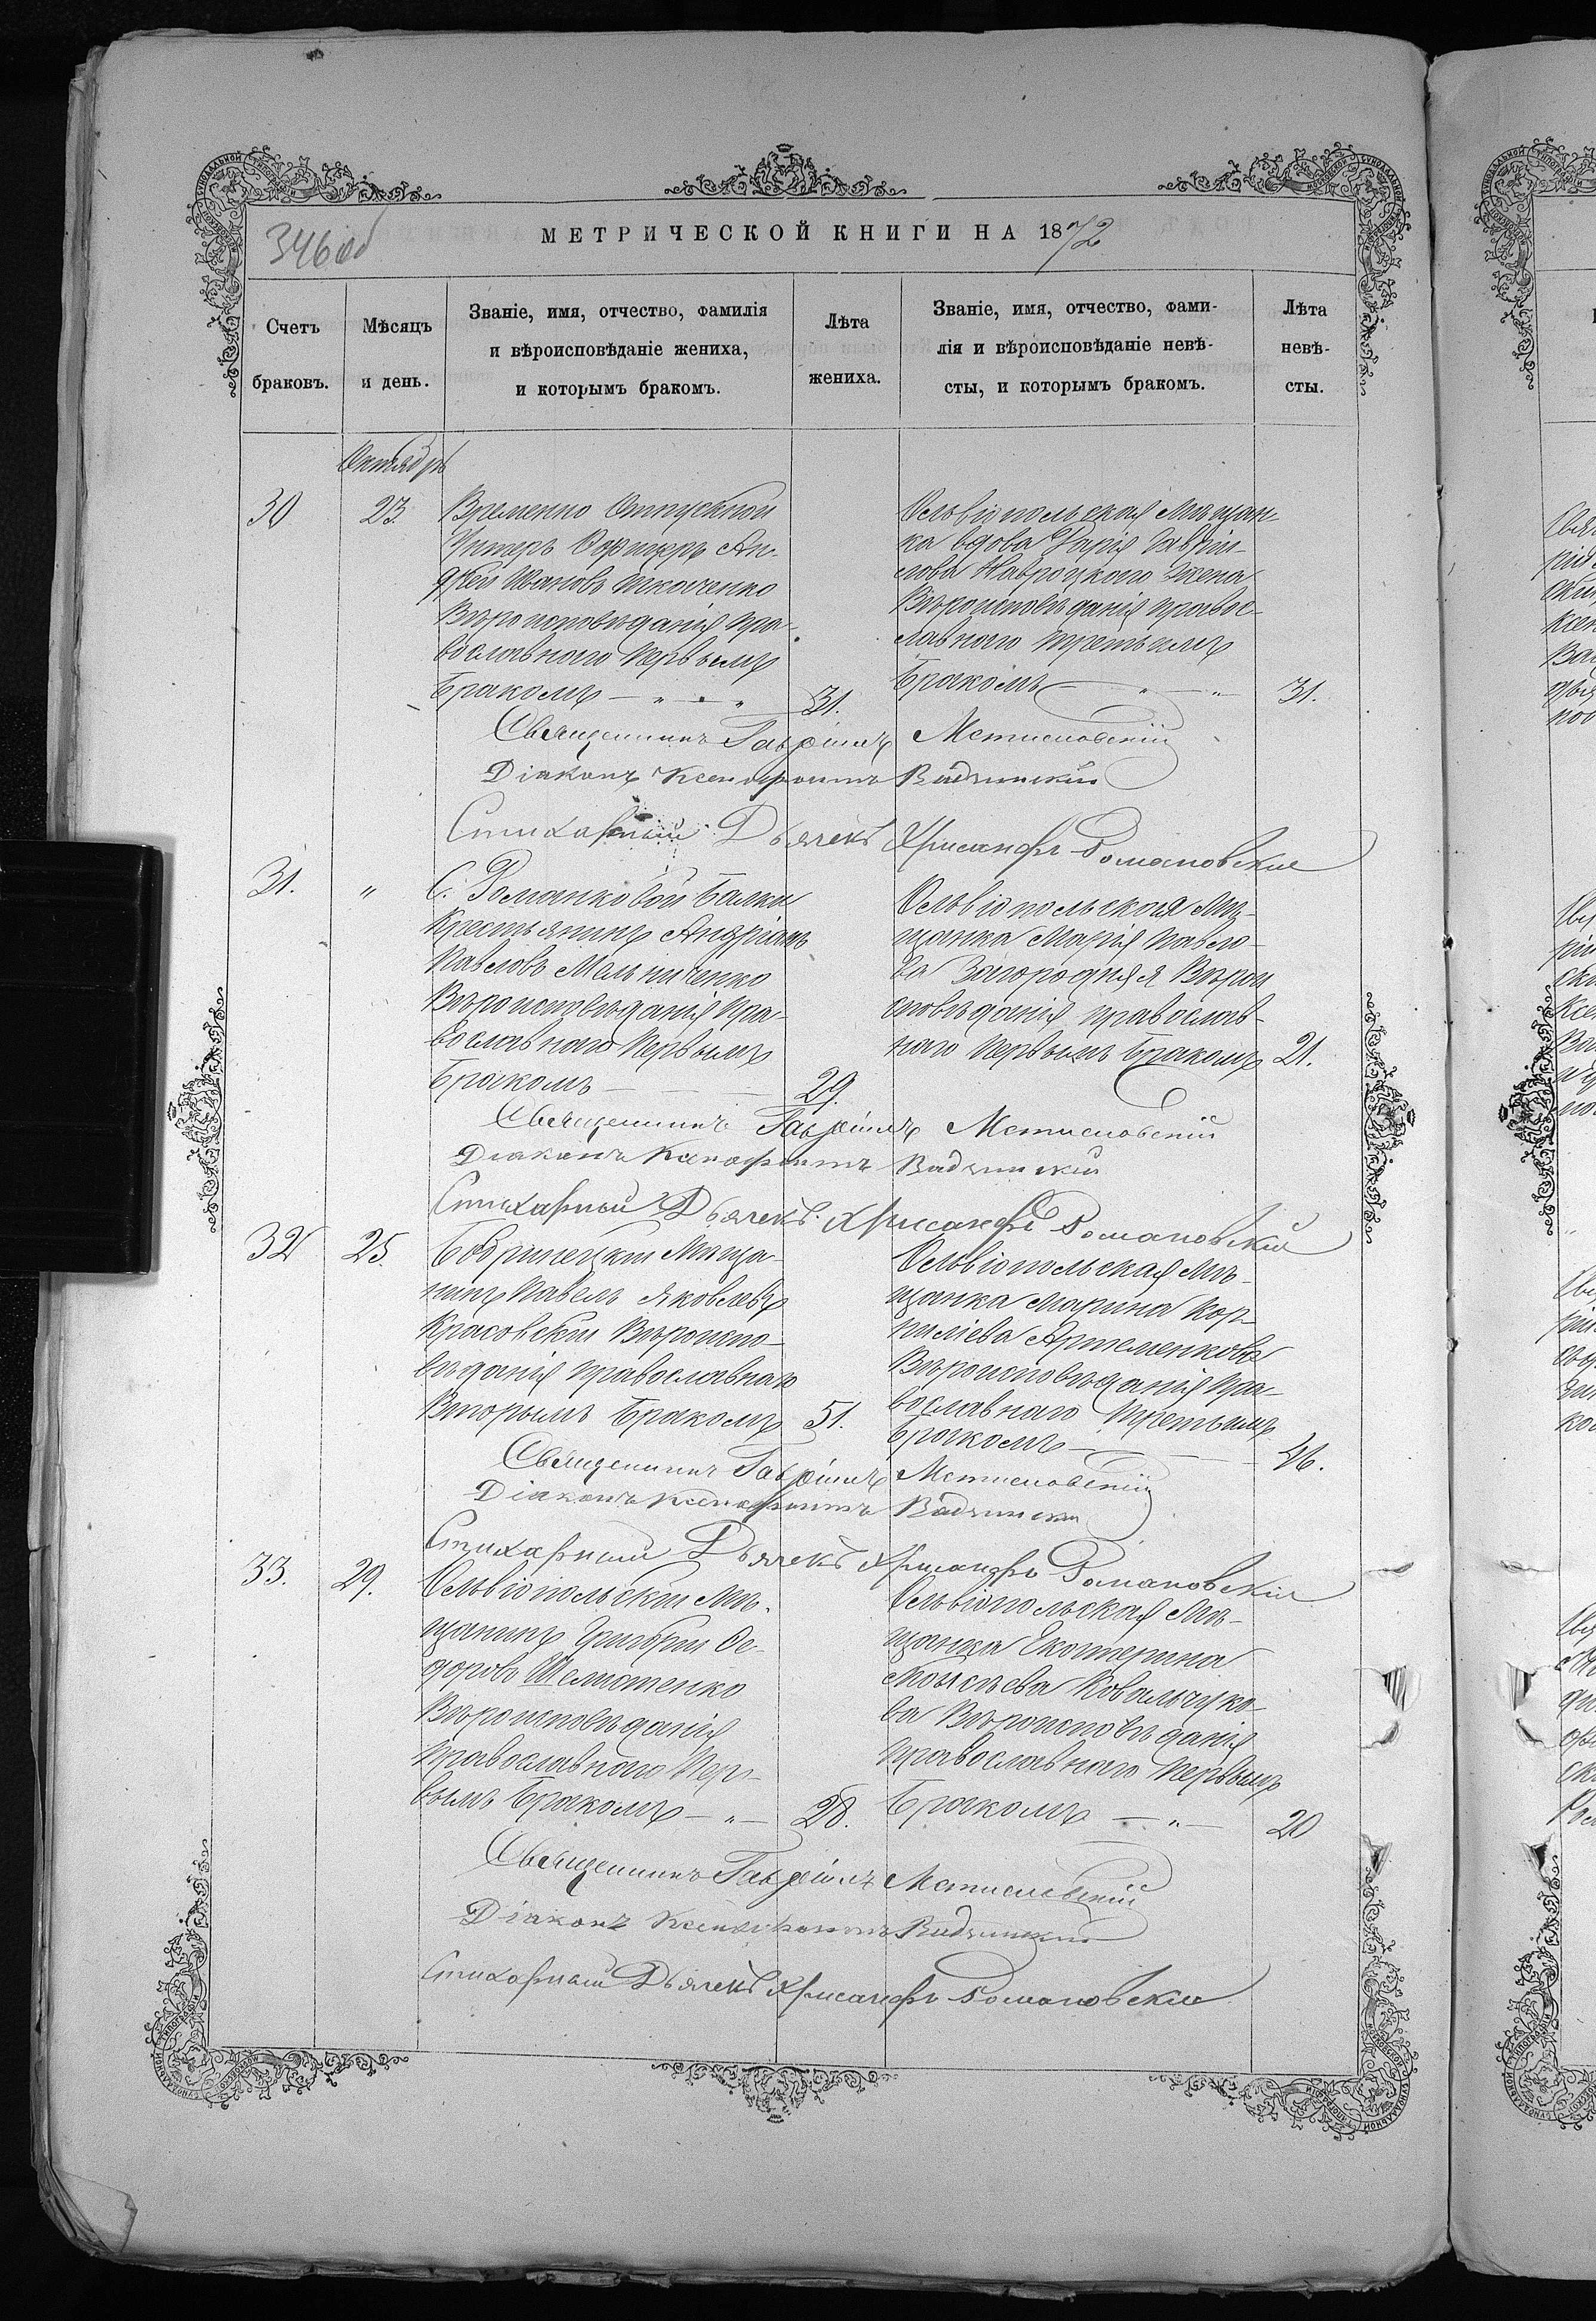 346 об
МЕТРИЧЕСКОЙ КНИГИ НА 1872
Счетъ браковъ.
Мѣсяцъ и день.
Званіе, имя, отчество, фамилія
и вѣроисповѣданіе жениха,
и которымъ бракомъ.
Лѣта
жениха.
Званіе, имя, отчество, фами-
лія и вѣроисповѣданіе невѣ-
сты, и которымъ бракомъ.
Лѣта
невѣ-
сты.
Октябрь
30
23.
Временно Отпускной
Унтеръ Офицеръ Ан-
дрей Ивановъ Ткаченко
Вѣроисповѣданія пра-
вославнаго Первымъ
Бракомъ
31.
Ольвіопольская Мѣщан-
ка вдова Дарія Гаврии-
лова Навроцкаго Жена
Вѣроисповѣданія правос-
лавнаго третьимъ
Бракомъ
31.
Священникъ Гавріилъ Мстиславскій
Діаконъ Ксенофонтъ
Стихарный Дьячекъ Хрисанфъ Романовскій
31.
"
С. Романковой Балки
Крестьянинъ Андріанъ
Павловъ Мельниченко
Вѣроисповѣданія Пра-
вославнаго Первымъ
Бракомъ
29.
Ольвіопольская Мѣ-
щанка Марія Павло-
ва Загородняя Вѣрои
сповѣданія православ-
наго Первымъ Бракомъ
21.
Священникъ Гавріилъ Мстиславскій
Діаконъ Ксенофонтъ
Стихарный Дьячекъ Хрисанфъ Романовскій
32
25.
Бобринецкій Мѣща-
нинъ Павелъ Яковлевъ
Красовскій Вѣроиспо-
вѣданія православнаго
Вторымъ Бракомъ
51.
Ольвіопольская Мѣ-
щанка Марина Кор-
ниліева Артеменкова
Вѣроисповѣданія Пра-
вославнаго Третьимъ
Бракомъ
46.
Священникъ Гавріилъ Мстиславскій
Діаконъ Ксенофонтъ
Стихарный Дьячекъ Хрисанфъ Романовскій
33.
29.
Ольвіопольскій Мѣ-
щанинъ Григорій Ѳе-
доровъ
Вѣроисповѣданія
Православнаго Пер-
вымъ Бракомъ
28.
Ольвіопольская Мѣ-
щанка Екатерина
Моисѣева Ковальчуко-
ва Вѣроисповѣданія
Православнаго Первымъ
Бракомъ
20
Священникъ Гавріилъ Мстиславскій
Діаконъ Ксенофонтъ
Стихарный Дьячекъ Хрисанфъ Романовскій